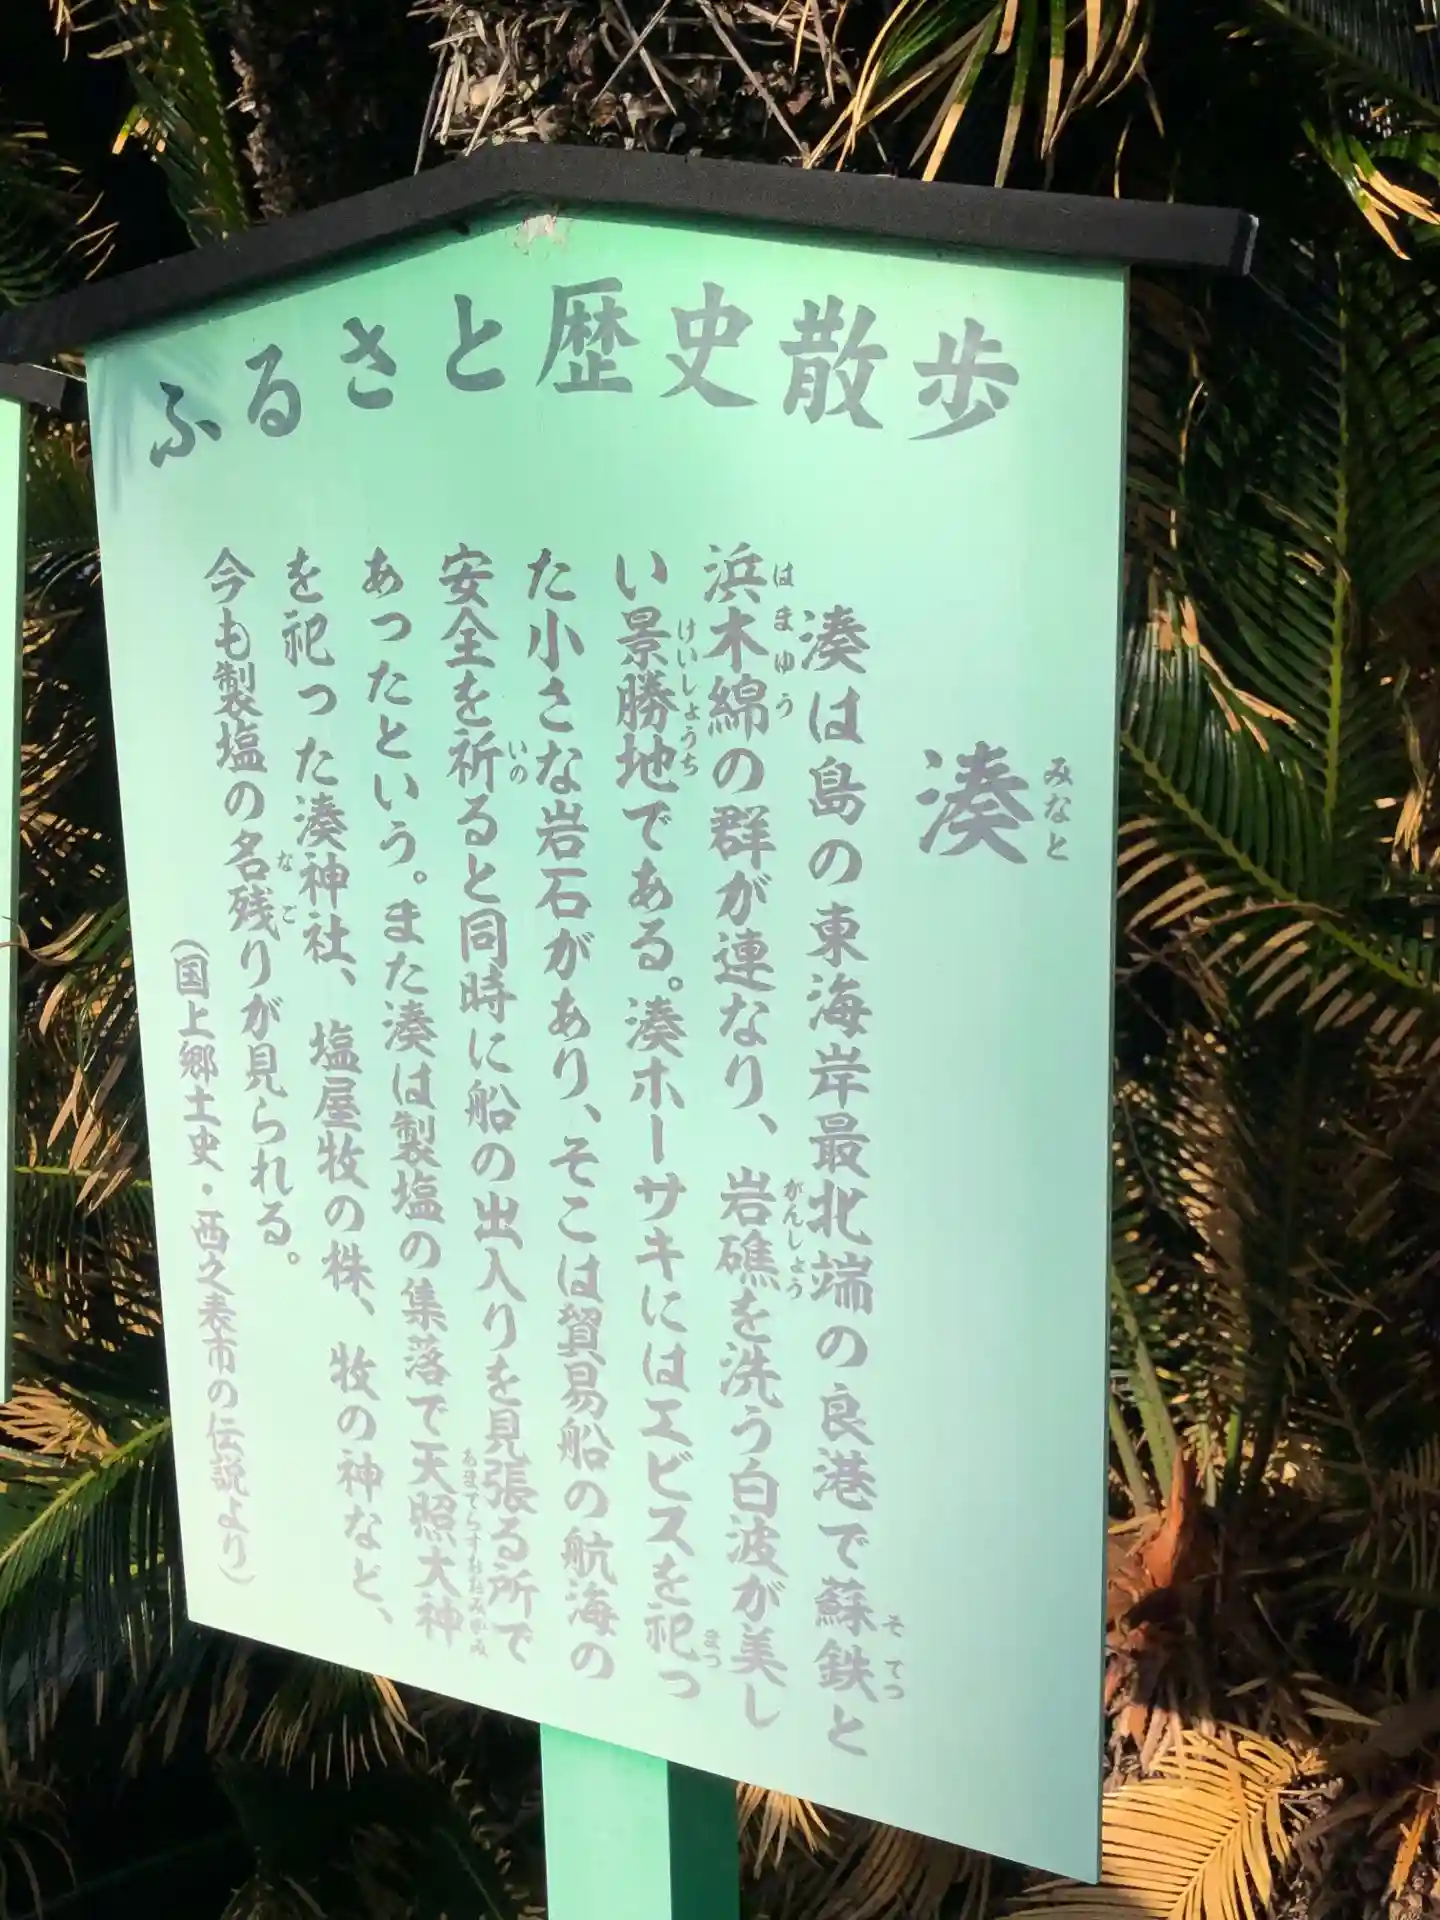 ふるさと歴史散歩
湊
みなと
湊は島の東海岸最北端の良港で蘇鉄と
そてつ
浜木綿の群が連なり、岩礁を洗う白波が美し
はまゆう
がんしょう
い景勝地である。湊ホーサキにはエビスを祀っ
けいしょうち
まつ
た小さな岩石があり、そこは貿易船の航海の
安全を祈ると同時に船の出入りを見張る所で
いの
あったという。また湊は製塩の集落で天照大神
あまてらすおおみかみ
を祀った湊神社、塩屋牧の株、牧の神など、
今も製塩の名残りが見られる。
なご
(国上郷土史・西之表市の伝説より)